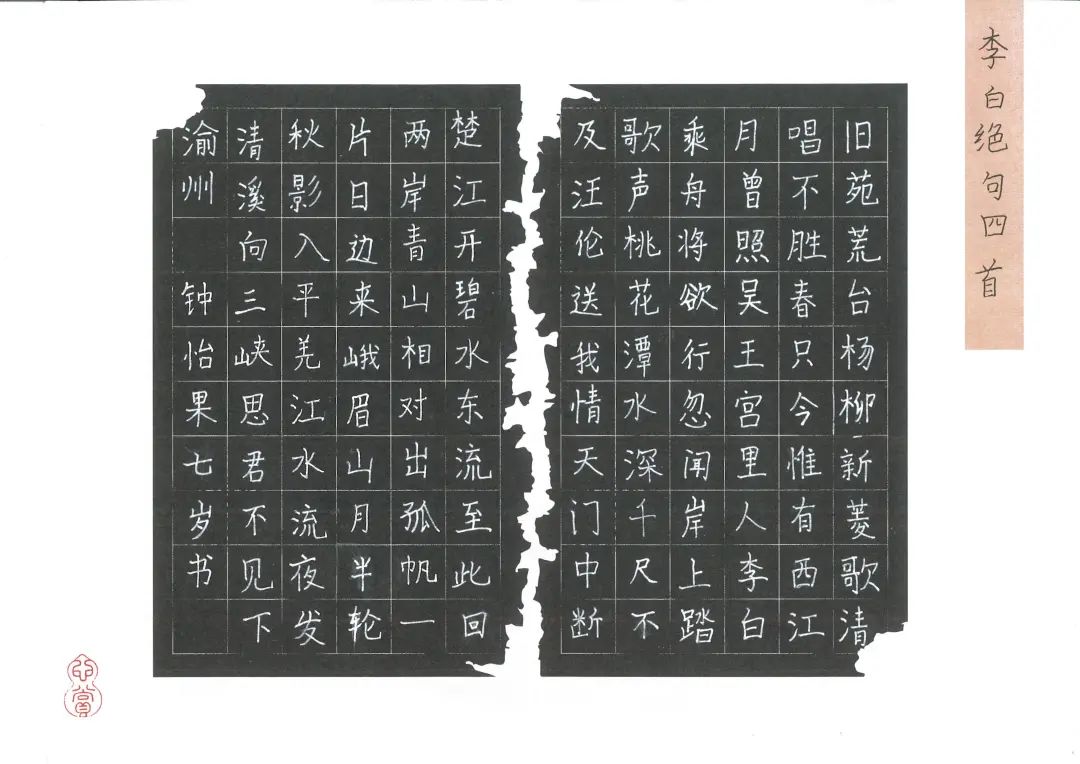 李白绝句四首
旧苑荒台杨柳新菱歌清
唱不胜春只今惟有西江
月曾照吴王宫里人李白
乘舟将欲行忽闻岸上踏
歌声桃花潭水深千尺不
及汪伦送我情天门中断
楚江开碧水东流至此回
两岸青山相对出孤帆一
片日边来峨眉山月半轮
秋影入平羌江水流夜发
清溪向三峡思君不见下
渝州 钟怡果七岁书